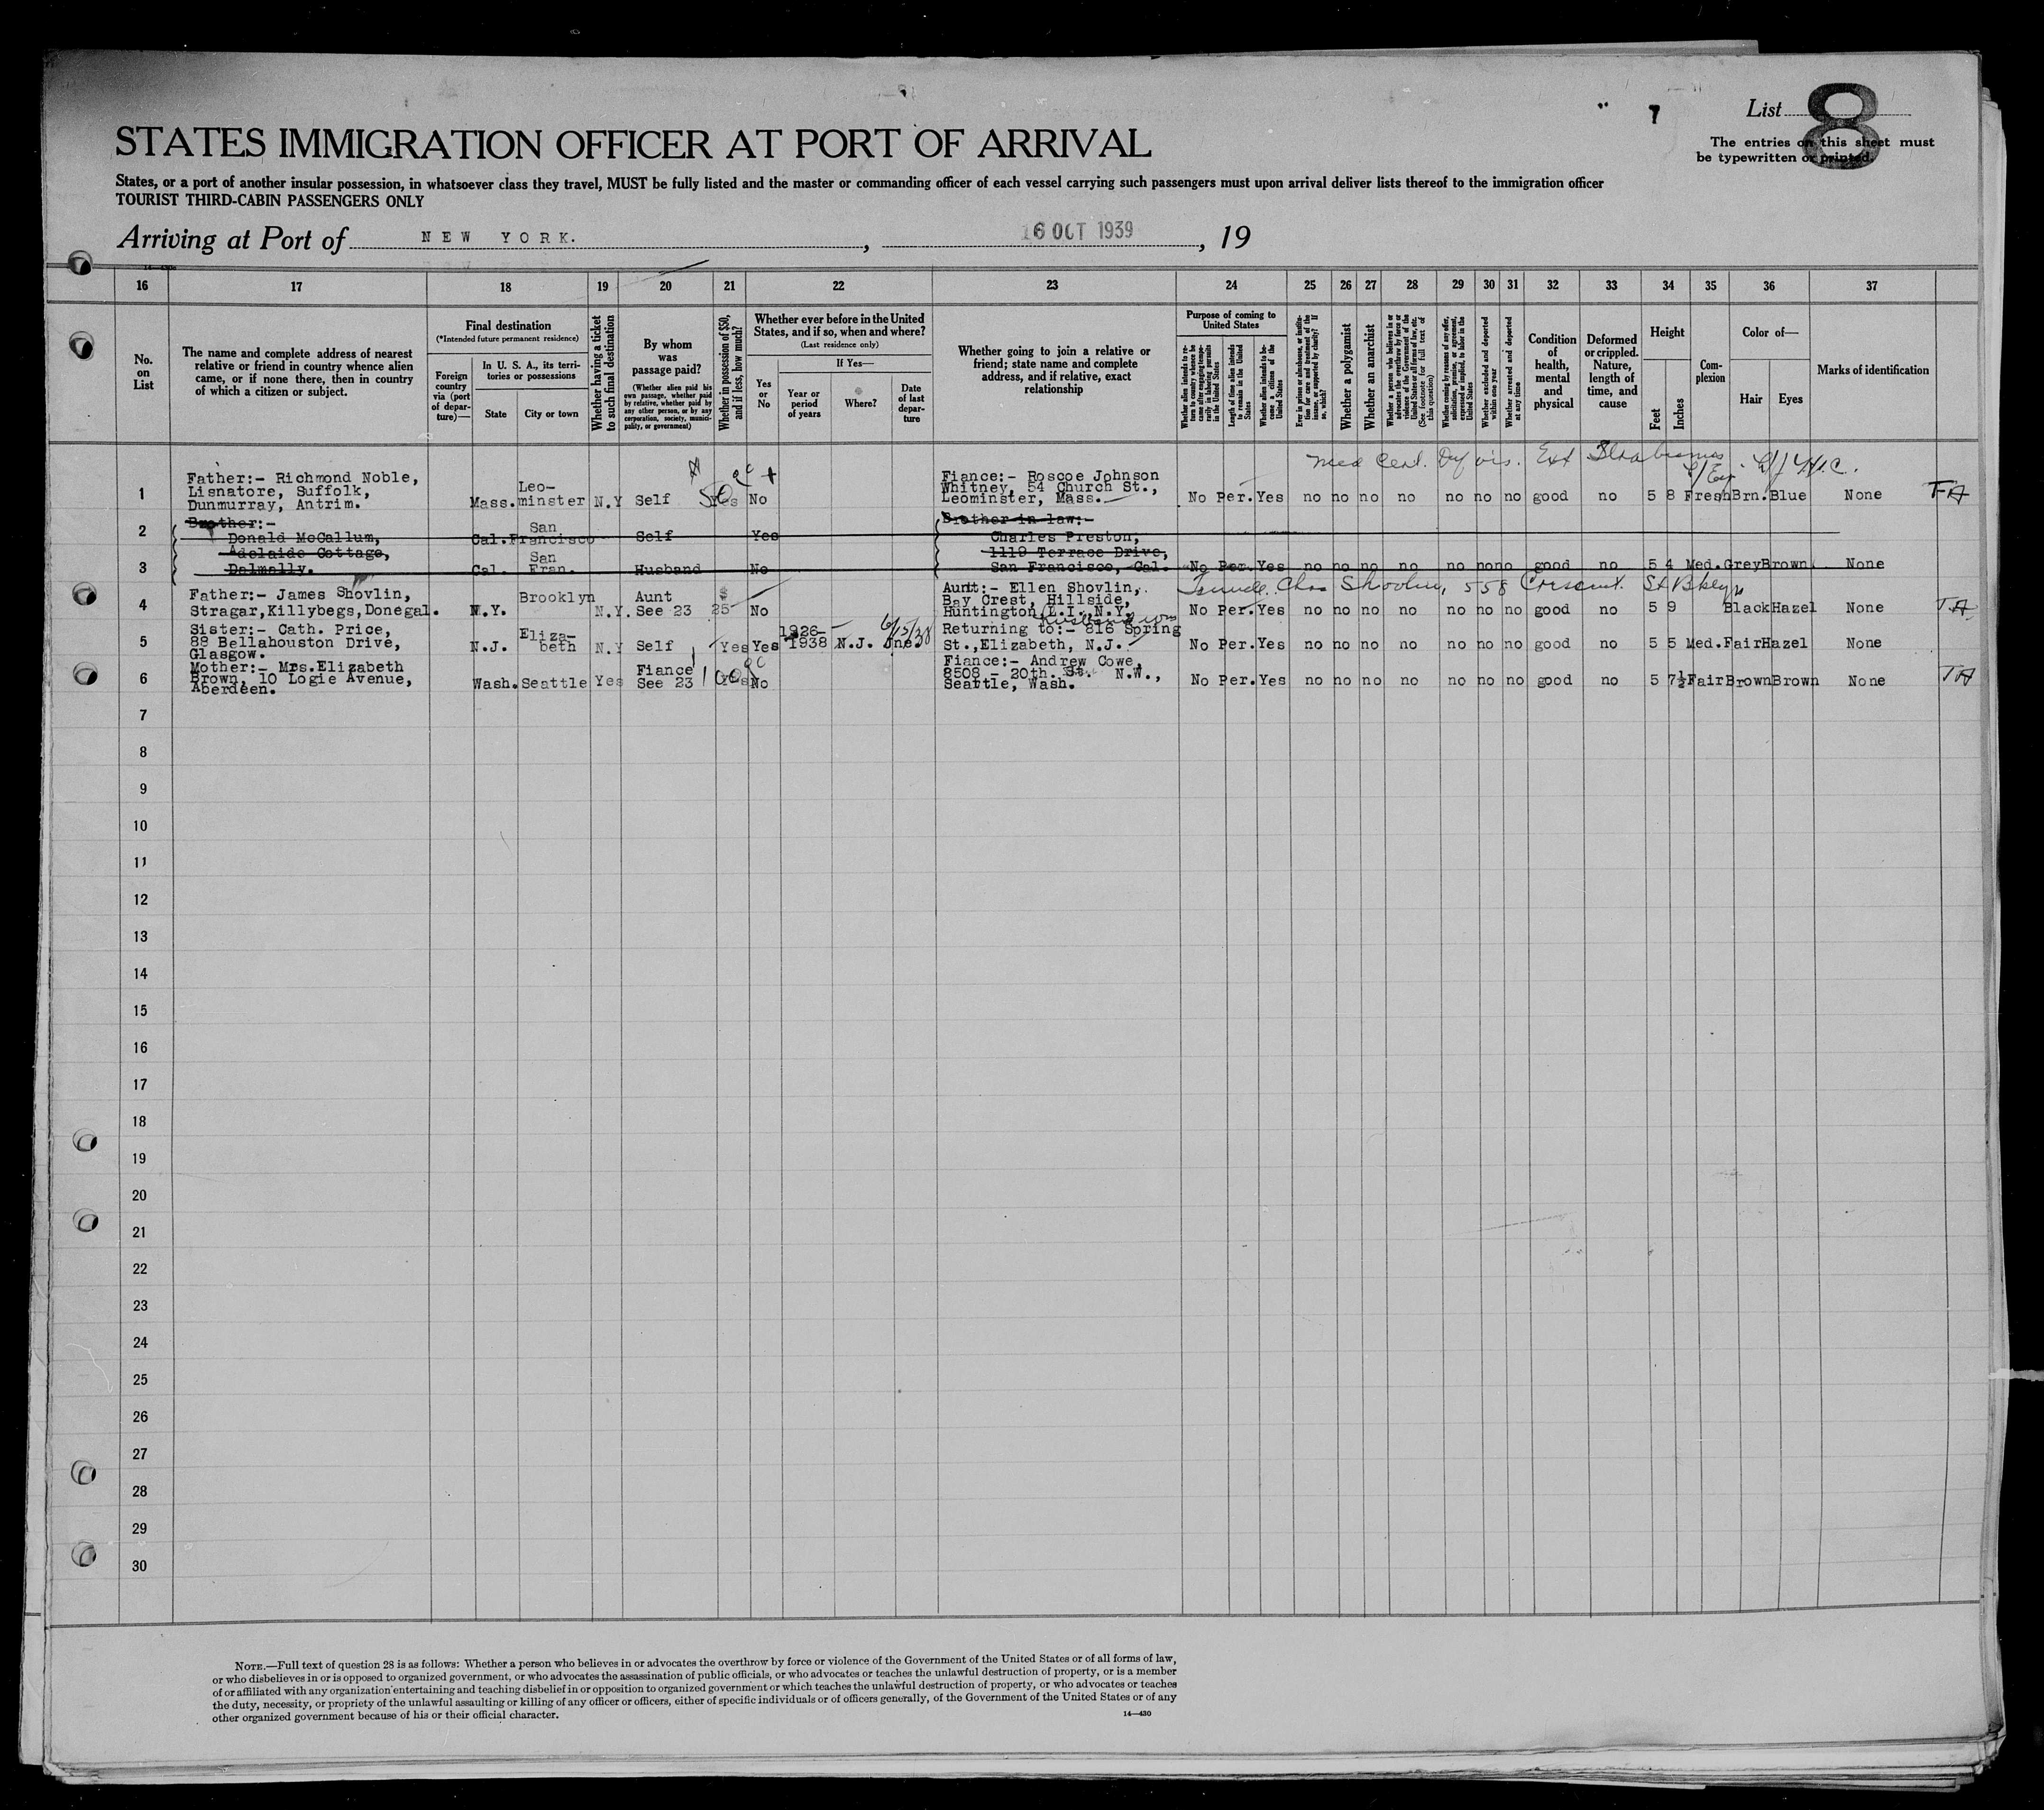 List 8
The entries on this sheet must
be typewritten or printed.
STATES IMMIGRATION OFFICER AT PORT OF ARRIVAL
States, or a port of another insular possession, in whatsoever class they travel, MUST be fully listed and the master or commanding officer of each vessel carrying such passengers must upon arrival deliver lists thereof to the immigration officer
TOURIST THIRD-CABIN PASSENGERS ONLY
Arriving at Port of NEW YORK. , 16 OCT 1939 , 19
16 17 18 19 20 21 22 23 24 25 26 27 28 29 30 31 32 33 34 35 36 37
No.
on
List
The name and complete address of nearest
relative or friend in country whence alien
came, or if none there, then in country
of which a citizen or subject.
Final destination
(*Intended future permanent residence)
Foreign
country
via (port
of depar-
ture)—
In U. S. A., its terri-
tories or possessions
State
City or town
Whether having a ticket
to such final destination
By whom
was
passage paid?
(Whether alien paid his
own passage, whether paid
by relative, whether paid by
any other person, or by any
corporation, society, munici-
pality, or government)
Whether in possession of $50,
and if less, how much?
Whether ever before in the United
States, and if so, when and where?
(Last residence only)
Yes
or
No
If Yes—
Year or
period
of years
Where?
Date
of last
depar-
ture
Whether going to join a relative or
friend; state name and complete
address, and if relative, exact
relationship
Purpose of coming to
United States
Whether alien intends to re-
turn to country whence he
came after engaging tempo-
rarily in laboring pursuits
in the United States
Length of time alien intends
to remain in the United
States
Whether alien intends to be-
come a citizen of the
United States
Ever in prison or almshouse, or institu-
tion for care and treatment of the
insane, or supported by charity? If
so, which?
Whether a polygamist
Whether an anarchist
Whether a person who believes in or
advocates the overthrow by force or
violence of the Government of the
United States or all forms of law, etc.
(See footnote for full text of
this question)
Whether coming by reasons of any offer,
solicitation, promise, or agreement,
expressed or implied, to labor in the
United States
Whether excluded and deported
within one year
Whether arrested and deported
at any time
Condition
of
health,
mental
and
physical
Deformed
or crippled.
Nature,
length of
time, and
cause
Height
Feet
Inches
Com-
plexion
Color of—
Hair
Eyes
Marks of identification
Med Cert. Def vis. Ext Strabismus
1 Father:- Richmond Noble,
Lisnatore, Suffolk,
Dunmurray, Antrim.
Mass. Leo-
minster N.Y Self $50 Yes No
Fiance:- Roscoe Johnson
Whitney, 54 Church St.,
Leominster, Mass.
No Per. Yes no no no no no no no good no 5 8 Fresh Brn. Blue None TA
2 Brother:-
Donald McCallum,
Adelaide Cottage,
Dalmally.
Cal. San
Francisco Self Yes
Brother-in-law:-
Charles Preston,
1119 Terrace Drive,
San Francisco, Cal.
3 Cal. San
Fran. Husband No
No Per. Yes no no no no no no no good no 5 4 Med. Grey Brown None
4 Father:- James Shovlin,
Stragar,Killybegs,Donegal.
N.Y. Brooklyn N.Y. Aunt
See 23 $
25 No
Aunt:- Ellen Shovlin,
Bay Crest, Hillside,
Huntington L.I. N.Y.
Chas Shovlin, 558 Crescent St Bklyn
No Per. Yes no no no no no no no good no 5 9 Black Hazel None TA
5 Sister:- Cath. Price,
88 Bellahouston Drive,
Glasgow.
N.J. Eliza-
beth N.Y Self Yes Yes 1926-
1938 N.J. June 6/15/38
Returning to:- 816 Spring
St.,Elizabeth, N.J.
No Per. Yes no no no no no no no good no 5 5 Med. Fair Hazel None
6 Mother:- Mrs.Elizabeth
Brown, 10 Logie Avenue,
Aberdeen.
Wash. Seattle Yes Fiance
See 23 100 Yes No
Fiance:- Andrew Cowe,
8508 - 20th. St. N.W.,
Seattle, Wash.
No Per. Yes no no no no no no no good no 5 7½ Fair Brown Brown None TA
7
8
9
10
11
12
13
14
15
16
17
18
19
20
21
22
23
24
25
26
27
28
29
30
NOTE.—Full text of question 28 is as follows: Whether a person who believes in or advocates the overthrow by force or violence of the Government of the United States or of all forms of law,
or who disbelieves in or is opposed to organized government, or who advocates the assassination of public officials, or who advocates or teaches the unlawful destruction of property, or is a member
of or affiliated with any organization entertaining and teaching disbelief in or opposition to organized government or which teaches the unlawful destruction of property, or who advocates or teaches
the duty, necessity, or propriety of the unlawful assaulting or killing of any officer or officers, either of specific individuals or of officers generally, of the Government of the United States or of any
other organized government because of his or their official character.
14—430